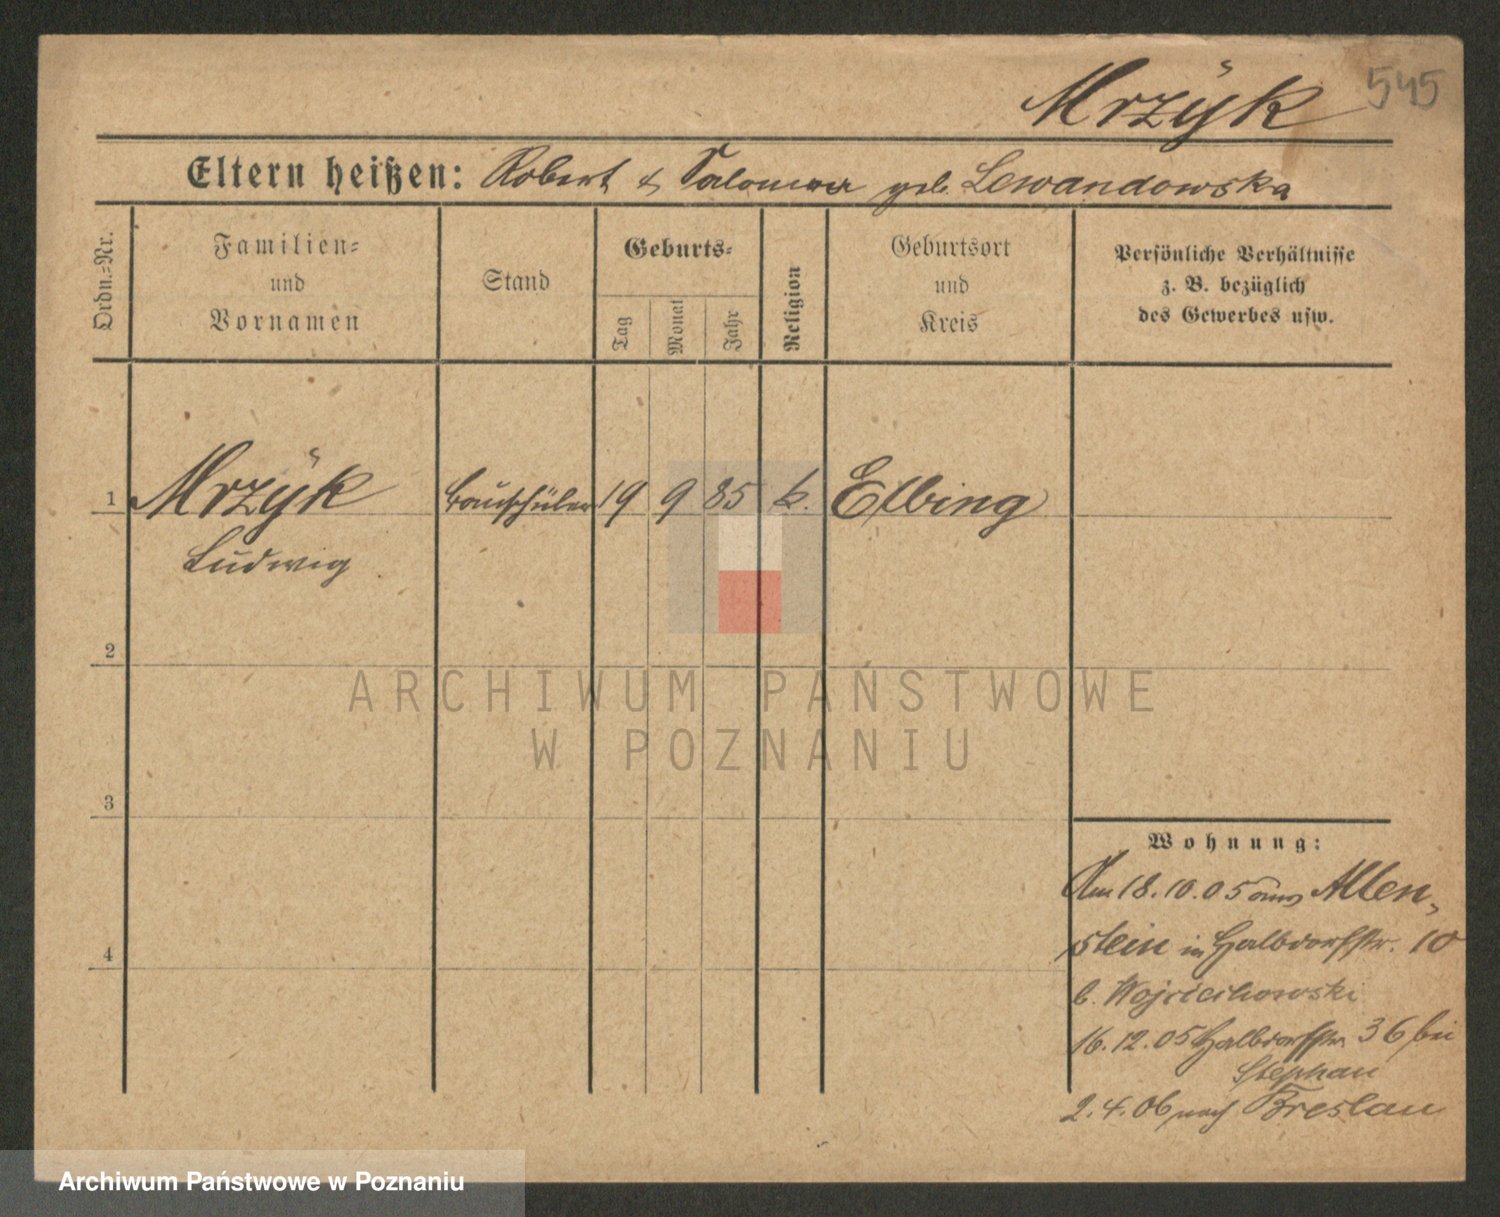 Mrzÿk 545
Eltern heißen: Robert & Salomea geb. Lewandowska
Ordn.=Nr.
Familien-
und
Vornamen
Stand
Geburts-
Tag
Monat
Jahr
Religion
Geburtsort
und
Kreis
Persönliche Verhältnisse
z. B. bezüglich
des Gewerbes usw.
1 Mrzÿk Bauschüler 19 9 85 k. Elbing
Ludwig
2
ARCHIWUM PAŃSTWOWE
W POZNANIU
3
Wohnung:
Am 18.10.05 aus Allen-
stein in Halbdorfstr. 10
b. Wojciechowski
4
16.12.05 Halbdorfstr. 36 bei
Stephan
2.4.06 nach Breslau
Archiwum Państwowe w Poznaniu